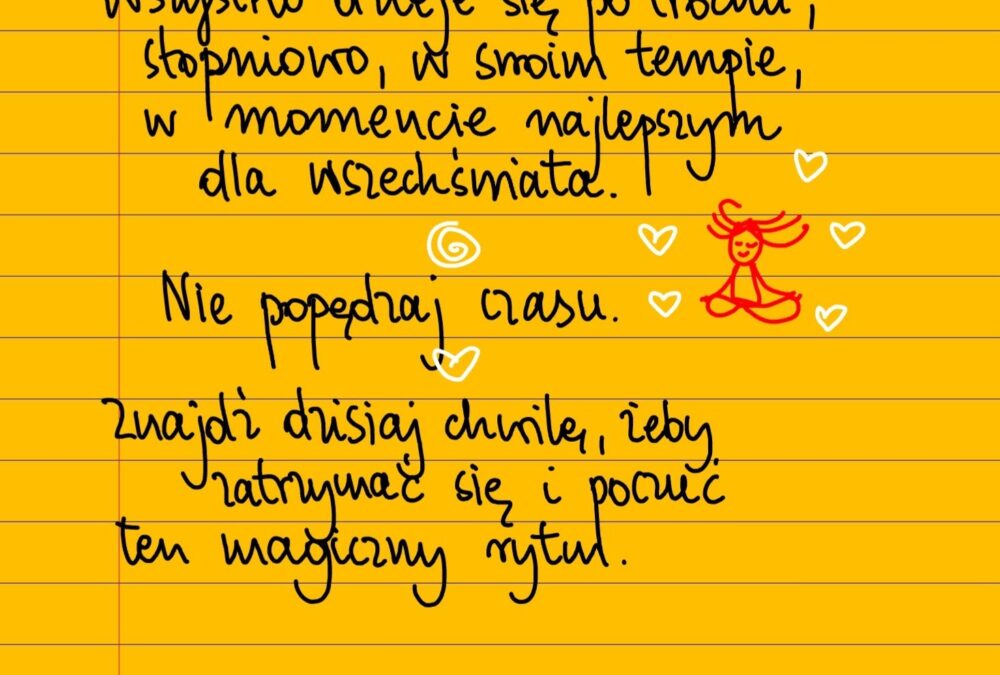 Wszystko dzieje się po trochu,
stopniowo, w swoim tempie,
w momencie najlepszym
dla wszechświata.
Nie popędzaj czasu.
Znajdź dzisiaj chwilę, żeby
zatrzymać się i poczuć
ten magiczny rytm.